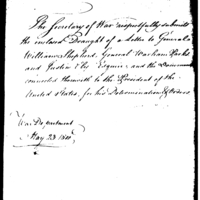 The Secretary of War respectfully submits
the inclosed Draught of a Letter to Generals
William Shepherd, General Warham Parks
and Justin Ely Esquire, and the Documents
connected therewith to the President of the
United States, for his Determination & Orders
War Department
May 23 1800.